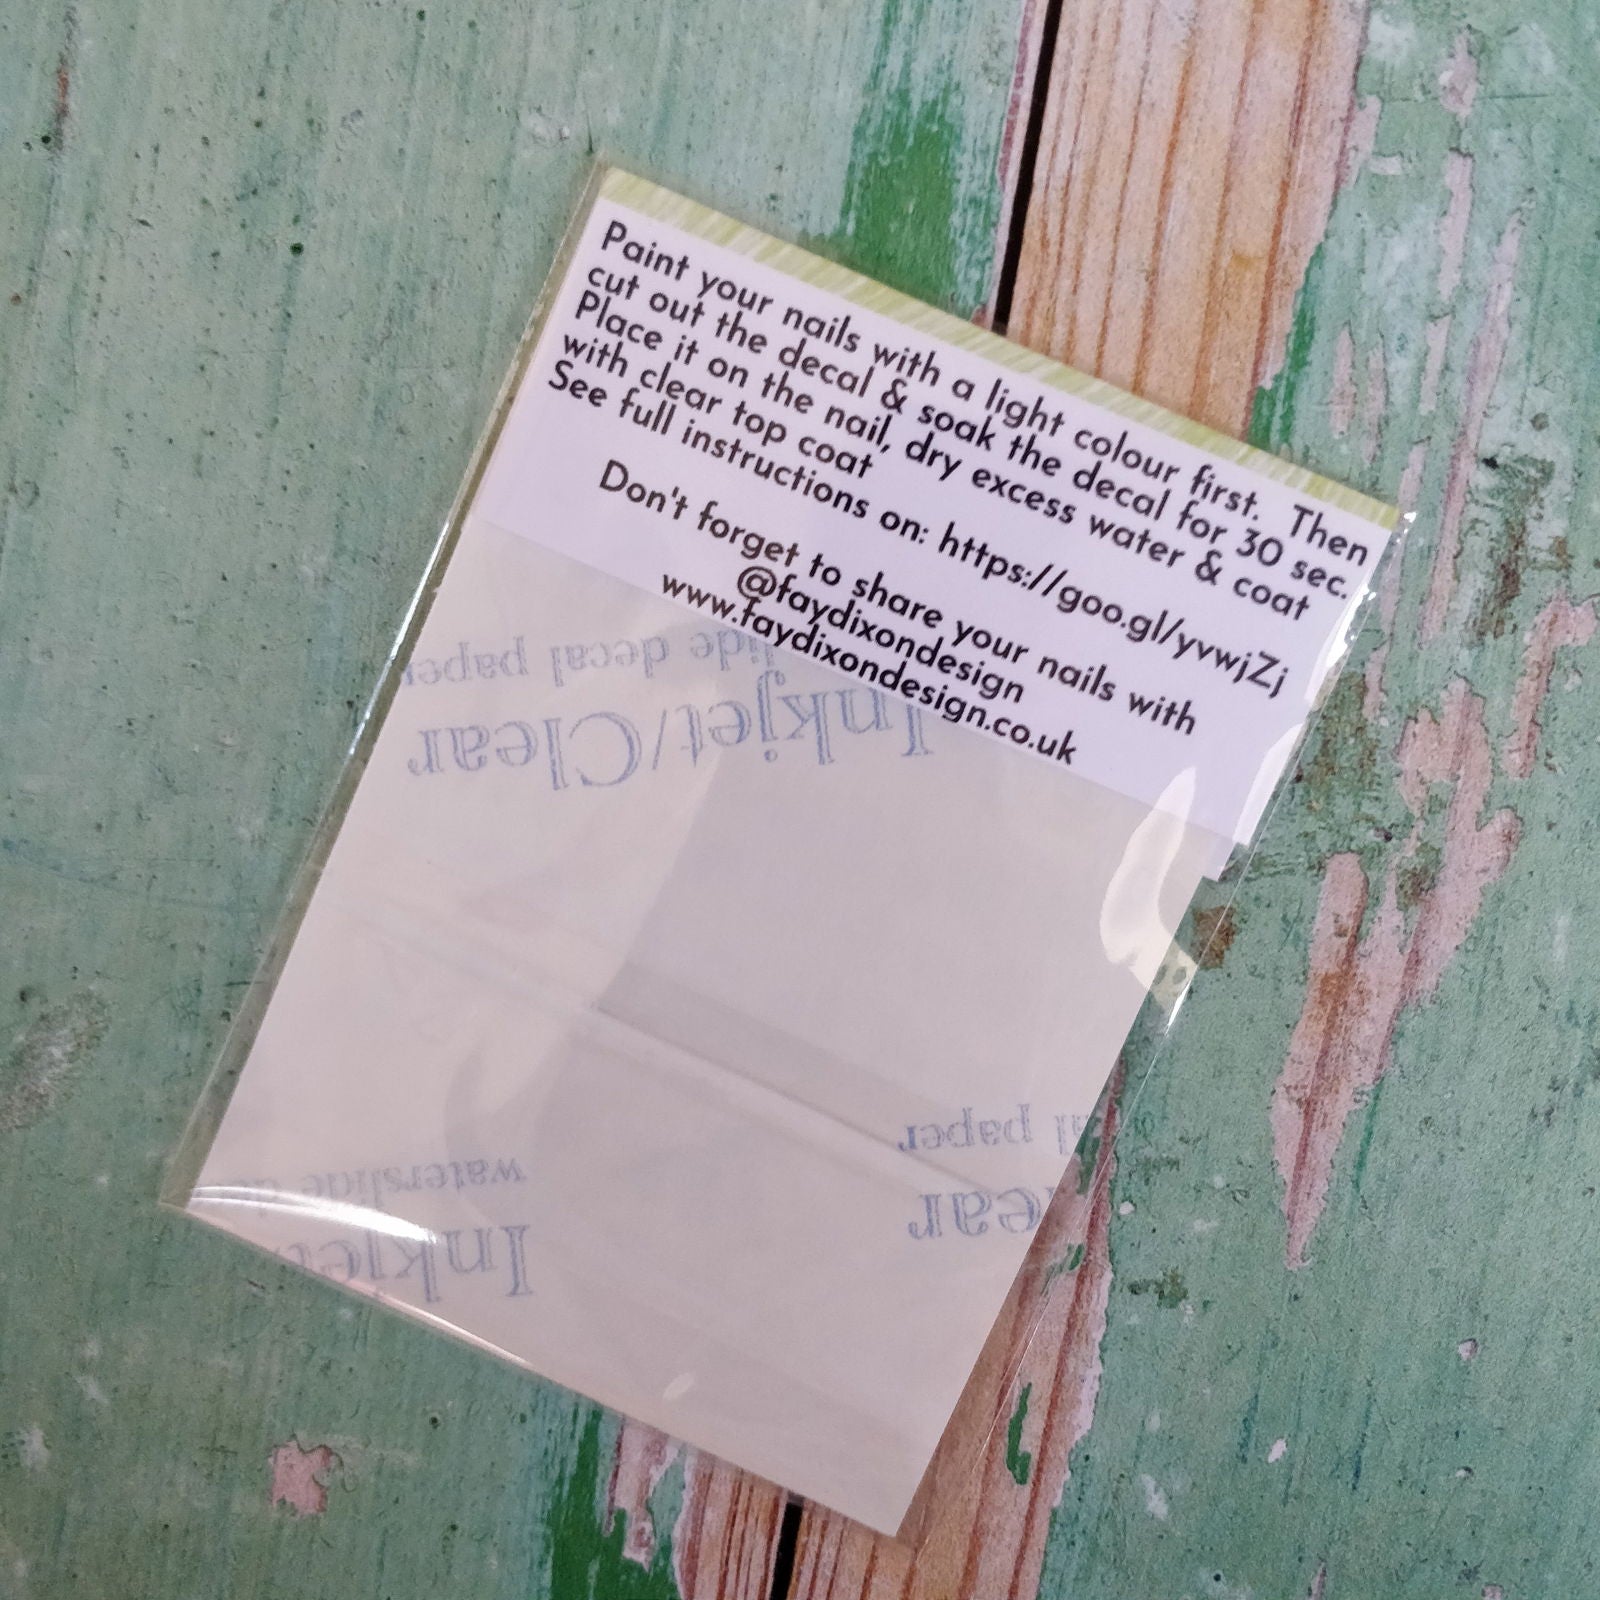 Paint your nails with a light colour first. Then
cut out the decal & soak the decal for 30 sec.
Place it on the nail, dry excess water & coat
with clear top coat
See full instructions on: https://goo.gl/yvwjZj
Don't forget to share your nails with
@faydixondesign
www.faydixondesign.co.uk
decal paper
Inkjet/Clear
paper
waterslide
Inkjet